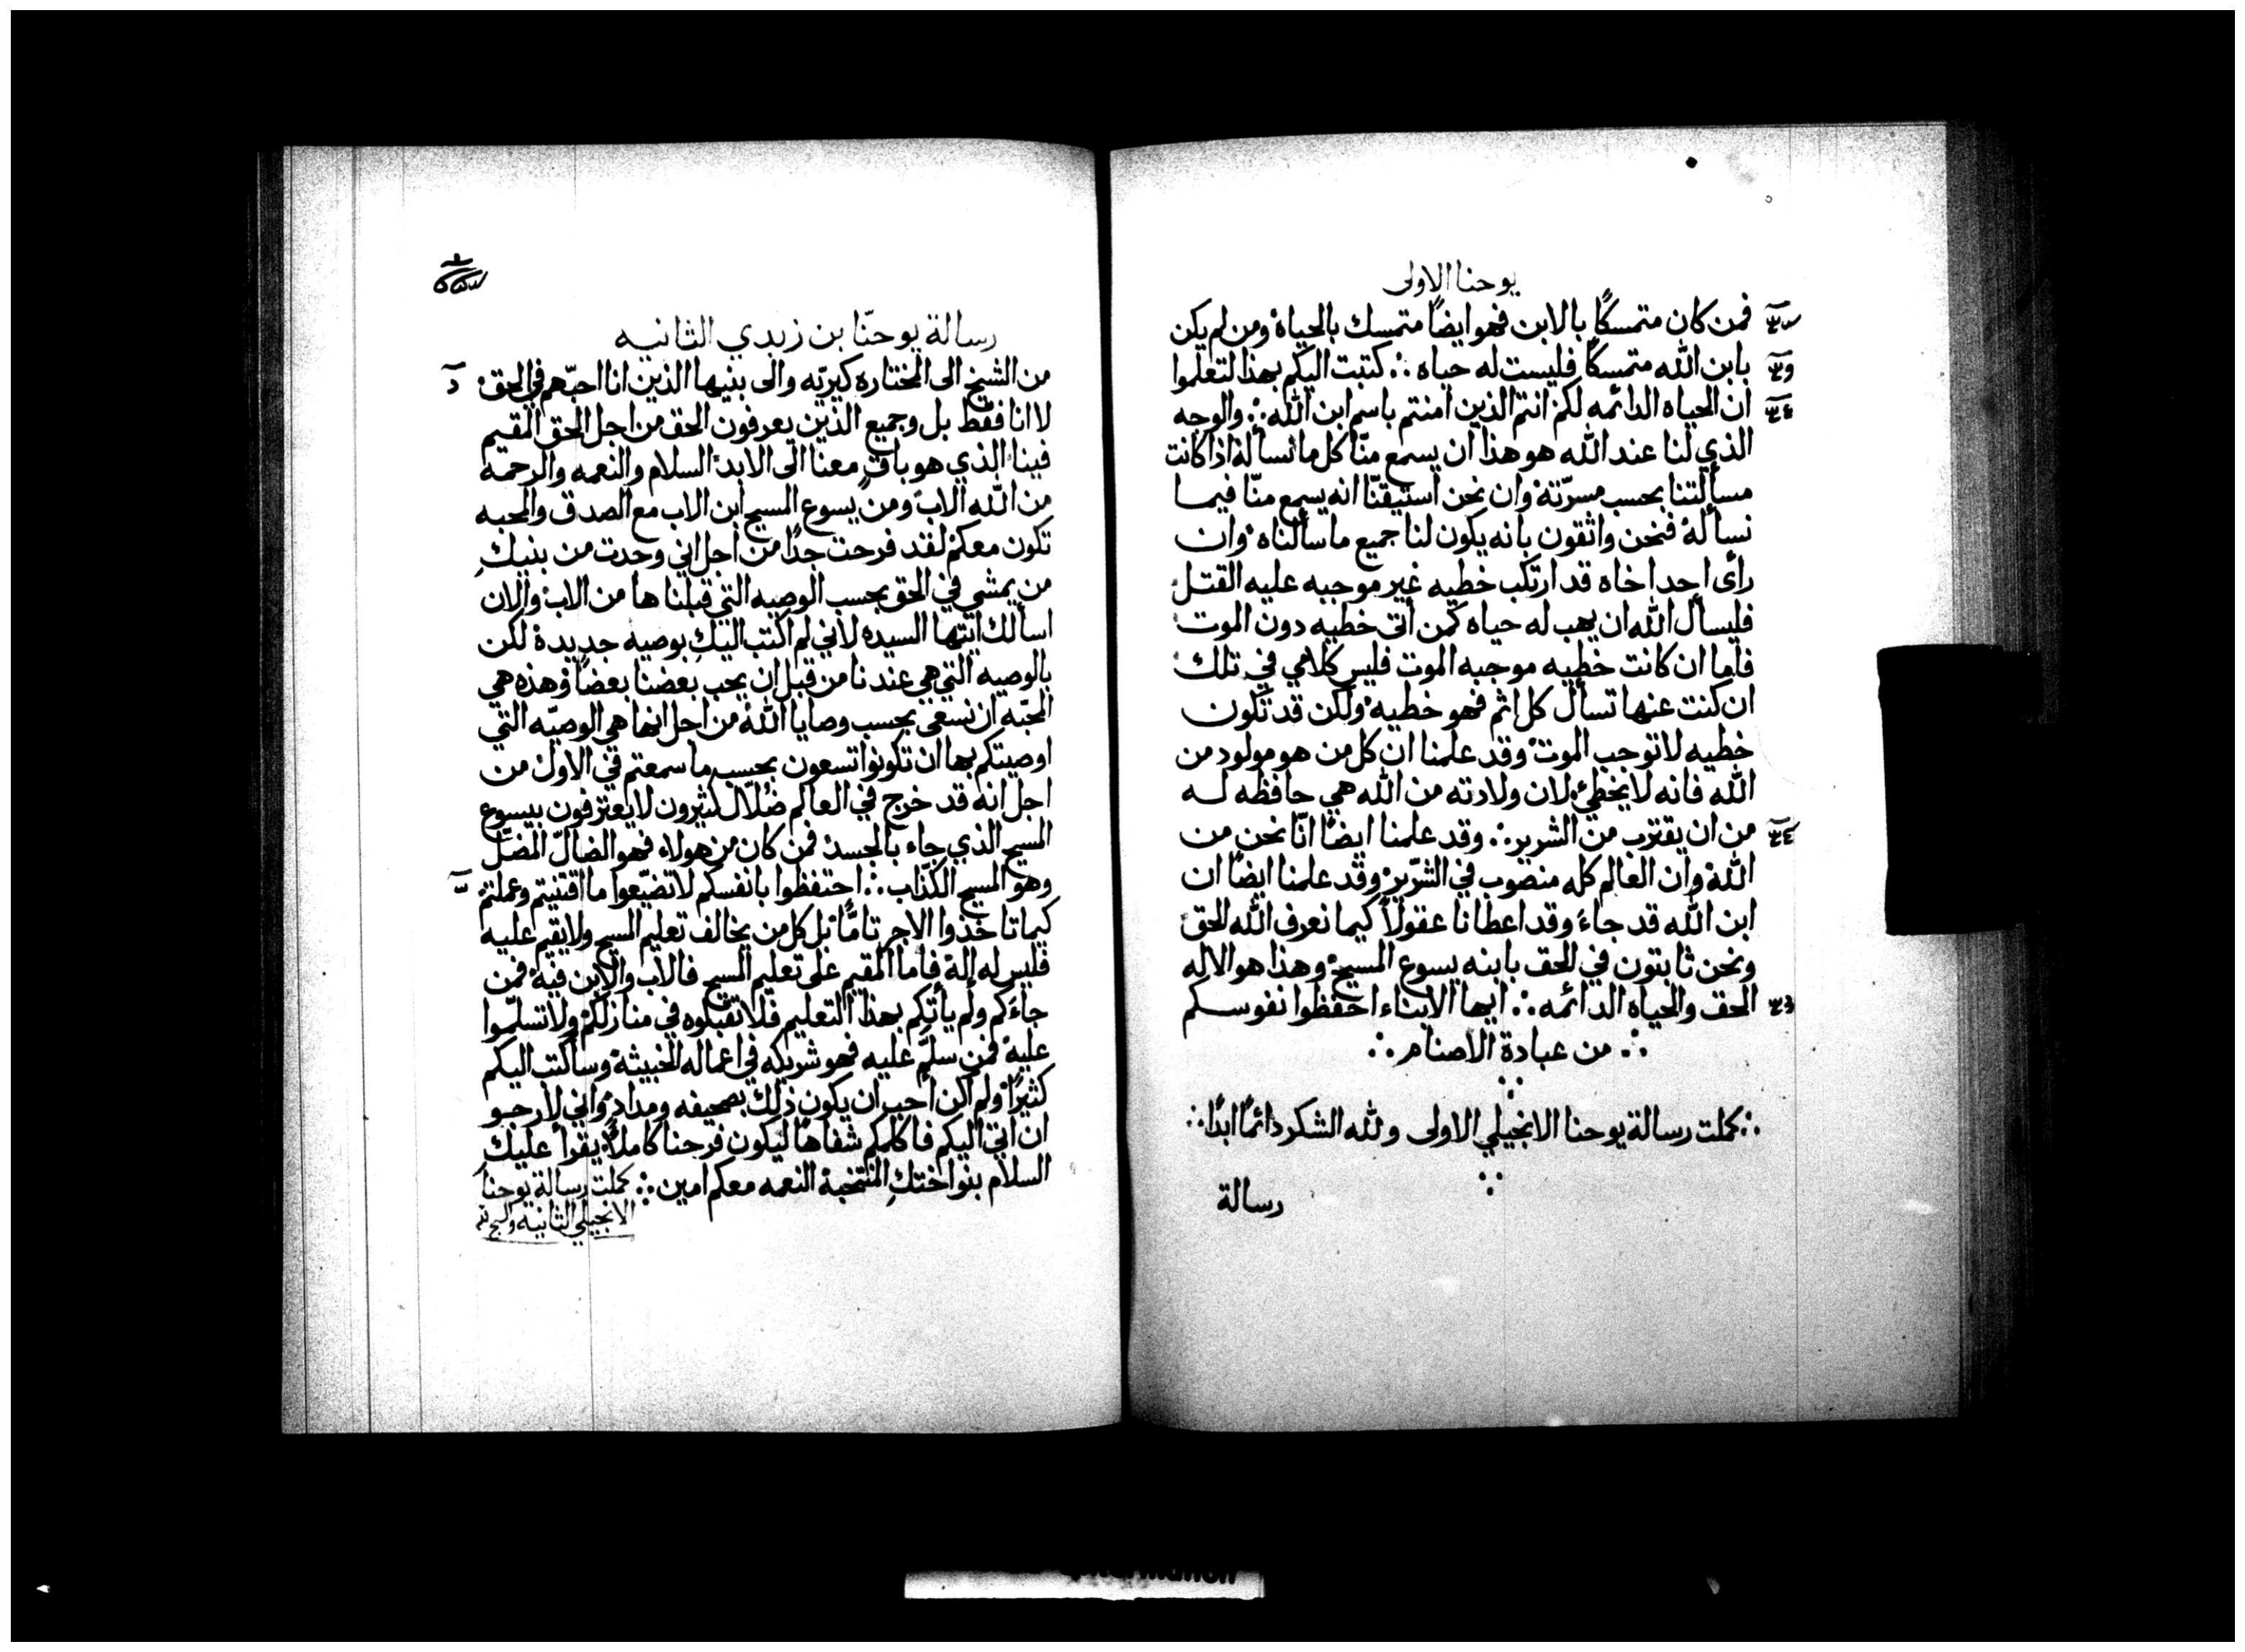 يوحنا الاولى
فمن كان متمسكًا بالابن فهو ايضًا متمسك بالحياة ومن لم يكن
بابن الله متمسكًا فليست له حياه ∴ كتبت اليكم بهذا لتعلموا
ان الحياه الدائمه لكم انتم الذين امنتم باسم ابن الله ∴ والوجه
الذي لنا عند الله هو هذا ان يسمع منّا كل ما نسأله اذا كانت
مسألتنا بحسب مسرّته وان نحن استيقنّا انه يسمع منّا فيما
نسأله فنحن واثقون بانه يكون لنا جميع ما سألناه وان
رأى احد اخاه قد ارتكب خطيه غير موجبه عليه القتل
فليسأل الله ان يهب له حياه كمن أتى خطيه دون الموت
فاما ان كانت خطيه موجبه الموت فليس كلامي في تلك
ان كنت عنها تسأل كل اثم فهو خطيه ولكن قد تكون
خطيه لا توجب الموت وقد علمنا ان كل من هو مولود من
الله فانه لا يخطئ لان ولادته من الله هي حافظه له
من ان يقترب من الشرير ∴ وقد علمنا ايضًا انّا نحن من
الله وان العالم كله منصوب في الشرّير وقد علمنا ايضًا ان
ابن الله قد جاء وقد اعطانا عقولاً كيما نعرف الله الحق
ونحن ثابتون في الحق بابنه يسوع المسيح وهذا هو الاله
الحق والحياه الدائمه ∴ ايها الابناء احفظوا نفوسكم
∴ من عبادة الاصنام ∴
∴ كملت رسالة يوحنا الانجيلي الاولى ولله الشكر دائمًا ابدًا ∴
رسالة
رسالة يوحنّا بن زبدي الثانيه
من الشيخ الى المختاره كيريّه والى بنيها الذين انا احبّهم في الحق
لا انا فقط بل وجميع الذين يعرفون الحق من اجل الحق المقيم
فينا الذي هو باقٍ معنا الى الابد السلام والنعمه والرحمه
من الله الاب ومن يسوع المسيح ابن الاب مع الصدق والمحبه
تكون معكم لقد فرحت جدًا من اجل اني وجدت من بنيكِ
من يمشي في الحق بحسب الوصيه التي قبلناها من الاب والان
اسألك ايتها السيده لاني لم اكتب اليكِ بوصيه جديدة لكن
بالوصيه التي هي عندنا من قبل ان يحب بعضنا بعضًا وهذه هي
المحبّه ان نسعى بحسب وصايا الله من اجل انها هي الوصيّه التي
اوصيتكم بها ان تكونوا تسعون بحسب ما سمعتم في الاول من
اجل انه قد خرج في العالم ضُلّال كثيرون لا يعترفون بيسوع
المسيح الذي جاء بالجسد فمن كان من هولاء فهو الضالّ المضلّ
وهو المسيح الكذّاب ∴ احتفظوا بانفسكم لا تضيّعوا ما اقتنيتم وعملتم
كيما تاخذوا الاجر تامًّا بل كل من يخالف تعليم المسيح ولا يقيم عليه
فليس له اله فاما المقيم على تعليم المسيح فالاب والابن فيه فمن
جاءكم ولم يأتكم بهذا التعليم فلا تقبلوه في منازلكم ولا تسلّموا
عليه فمن سلّم عليه فهو شريكه في اعماله الخبيثه وسأكتب اليكم
كثيرًا ولم اكن احب ان يكون ذلك بصحيفه ومداد واني لارجو
ان اتي اليكم فاكلمكم شفاهًا ليكون فرحنا كاملاً يقرأ عليك
السلام بنو اختكِ المنتخبة النعمه معكم امين ∴ كملت رسالة يوحنا
الانجيلي الثانيه